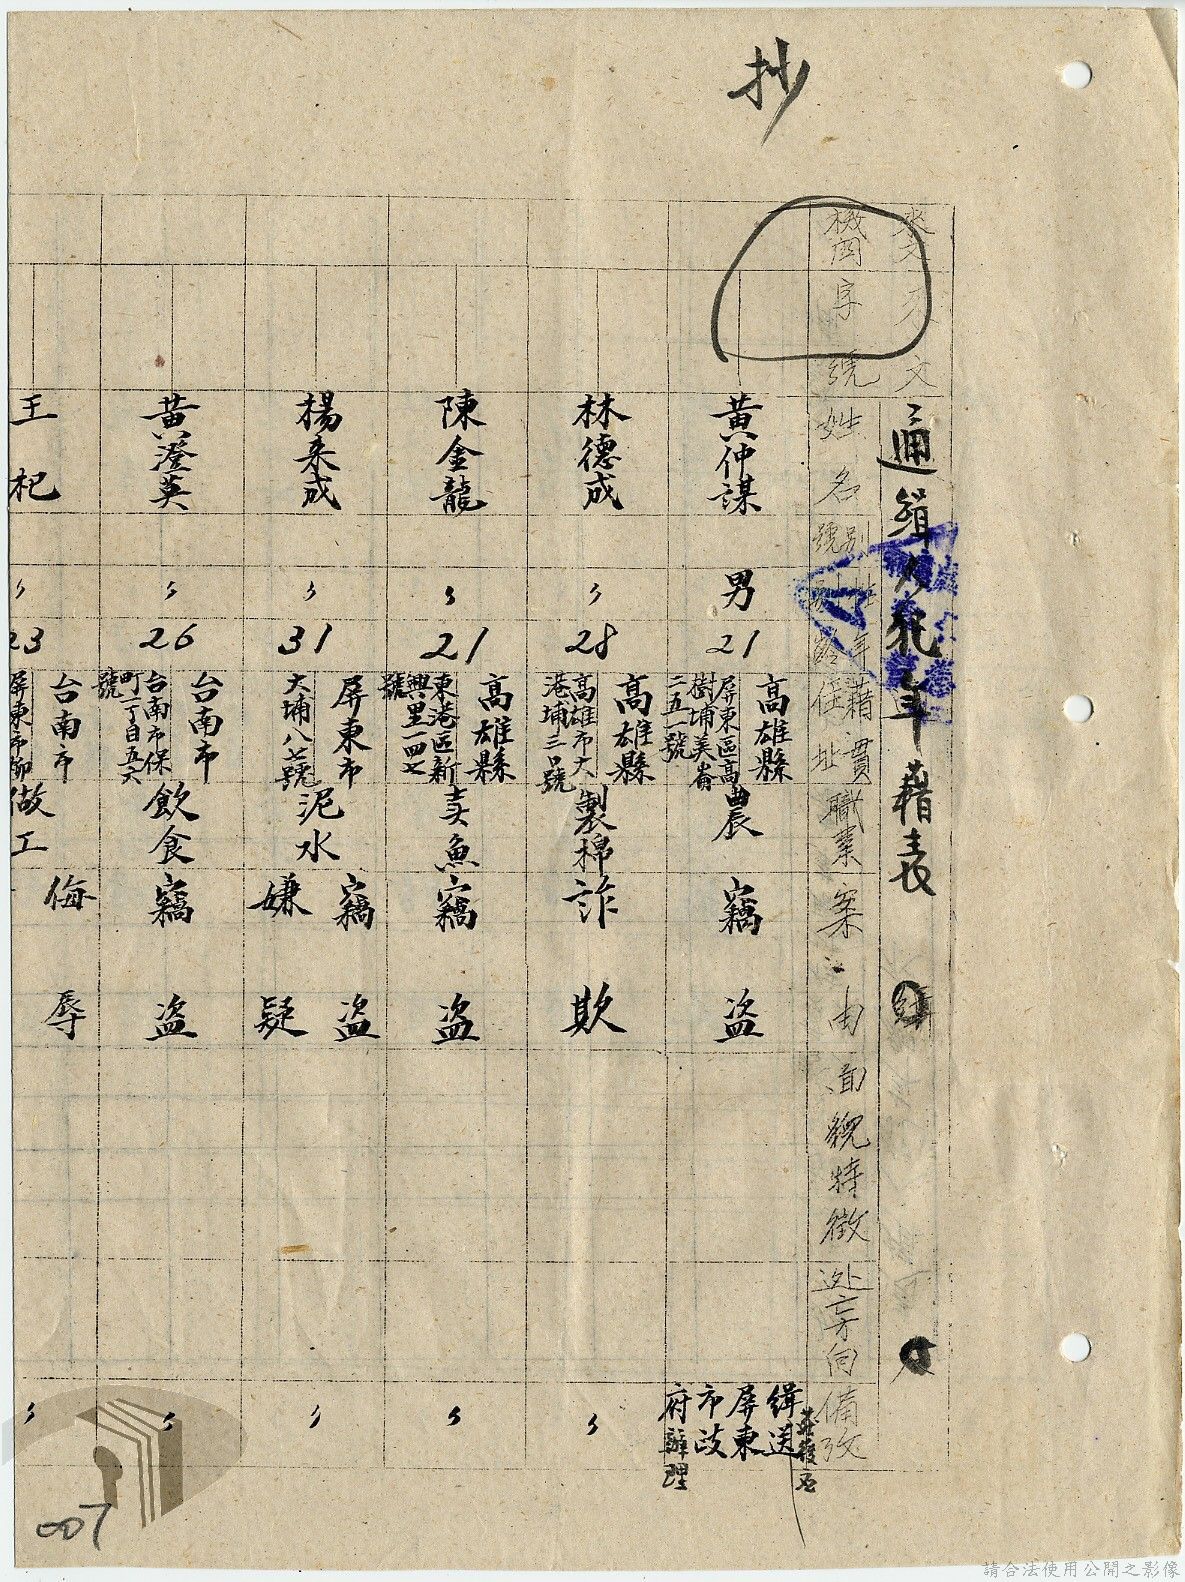 抄
通緝人犯年籍表
來文機関
來文字號
姓名
別號
性別
年齡
籍貫
住址
職業
案由
面貌特徵
逃亡方向
備攷
黃仲謀
男
21
高雄縣
屏東區高樹埔美崙二五一號
農
竊盜
緝送屏東市政府辦理
林德成
〃
28
高雄縣
高雄市大港埔三號
製棉
詐欺
〃
陳金龍
〃
21
高雄縣
東港區新興里一四七號
卖魚
竊盜
〃
楊来成
〃
31
屏東市
大埔八七號
泥水
竊盜嫌疑
〃
黃澄英
〃
26
台南市
台南市保町一丁目五六號
飲食
竊盜
〃
王杷
〃
23
台南市
屏東市
做工
侮辱
〃
007
請合法使用公開之影像